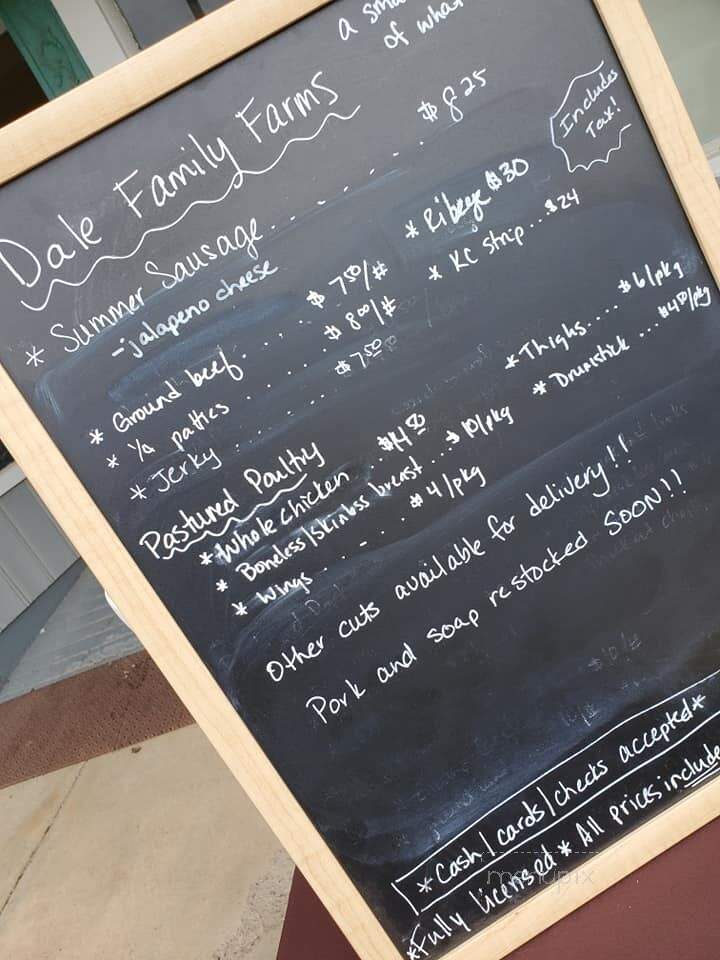 a
of what
Dale Family Farms
* Summer Sausage........ $8 25
-jalapeno cheese
Includes Tax!
* Ground beef..... $7 50/#
* 1/4 patties ..... $8 00/#
* Jerky ....... $7 50
* Ribeye $30
* KC Strip...$24
Pastured Poultry
* Whole chicken ..$4 50
* Boneless/skinlss breast....$10/pkg
* Wings ..... $4/pkg
* Thighs..... $6/pkg
* Drumstick ...$4 50/pkg
Other cuts available for delivery!!
Pork and soap restocked SOON!!
* Cash/cards/checks accepted*
*Fully licensed * All prices include
menupix